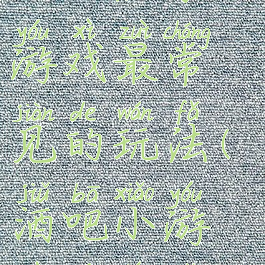 yóu xì zuì cháng
游戏最常
jiàn de wán fǎ
见的玩法(
jiǔ bā xiǎo yóu
酒吧小游